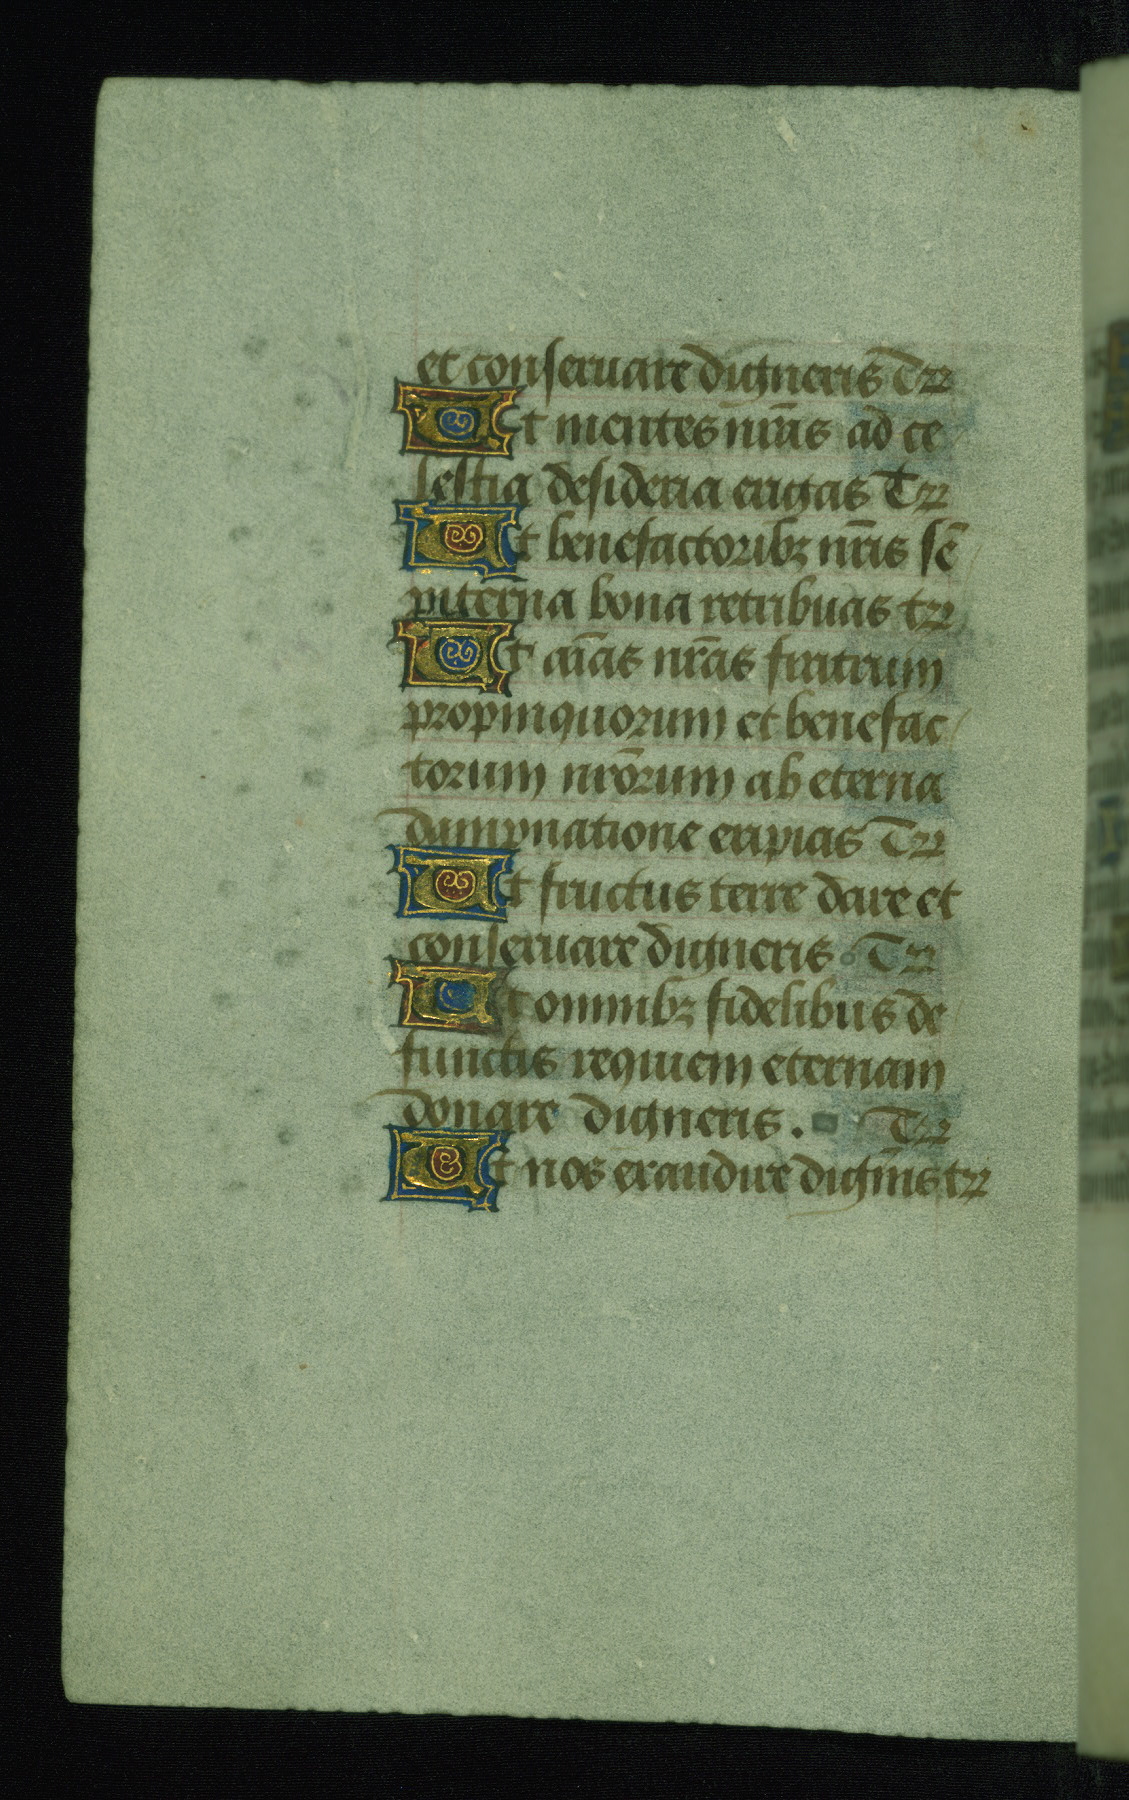 et conseruare digneris Tr̄
Ut mentes nr̄as ad ce
lestia desideria erigas Tr̄
Ut benefactoribꝫ nr̄is sē
piterna bona retribuas tr̄
Ut aīas nr̄as fratrum
propinquorum et benefac
torum nrōrum ab eterna
dampnatione eripias Tr̄
Ut fructus terre dare et
conseruare digneris. Tr̄
Ut omnibꝫ fidelibus de
functis requiem eternam
donare digneris. Tr̄
Ut nos exaudire digr̄nis tr̄